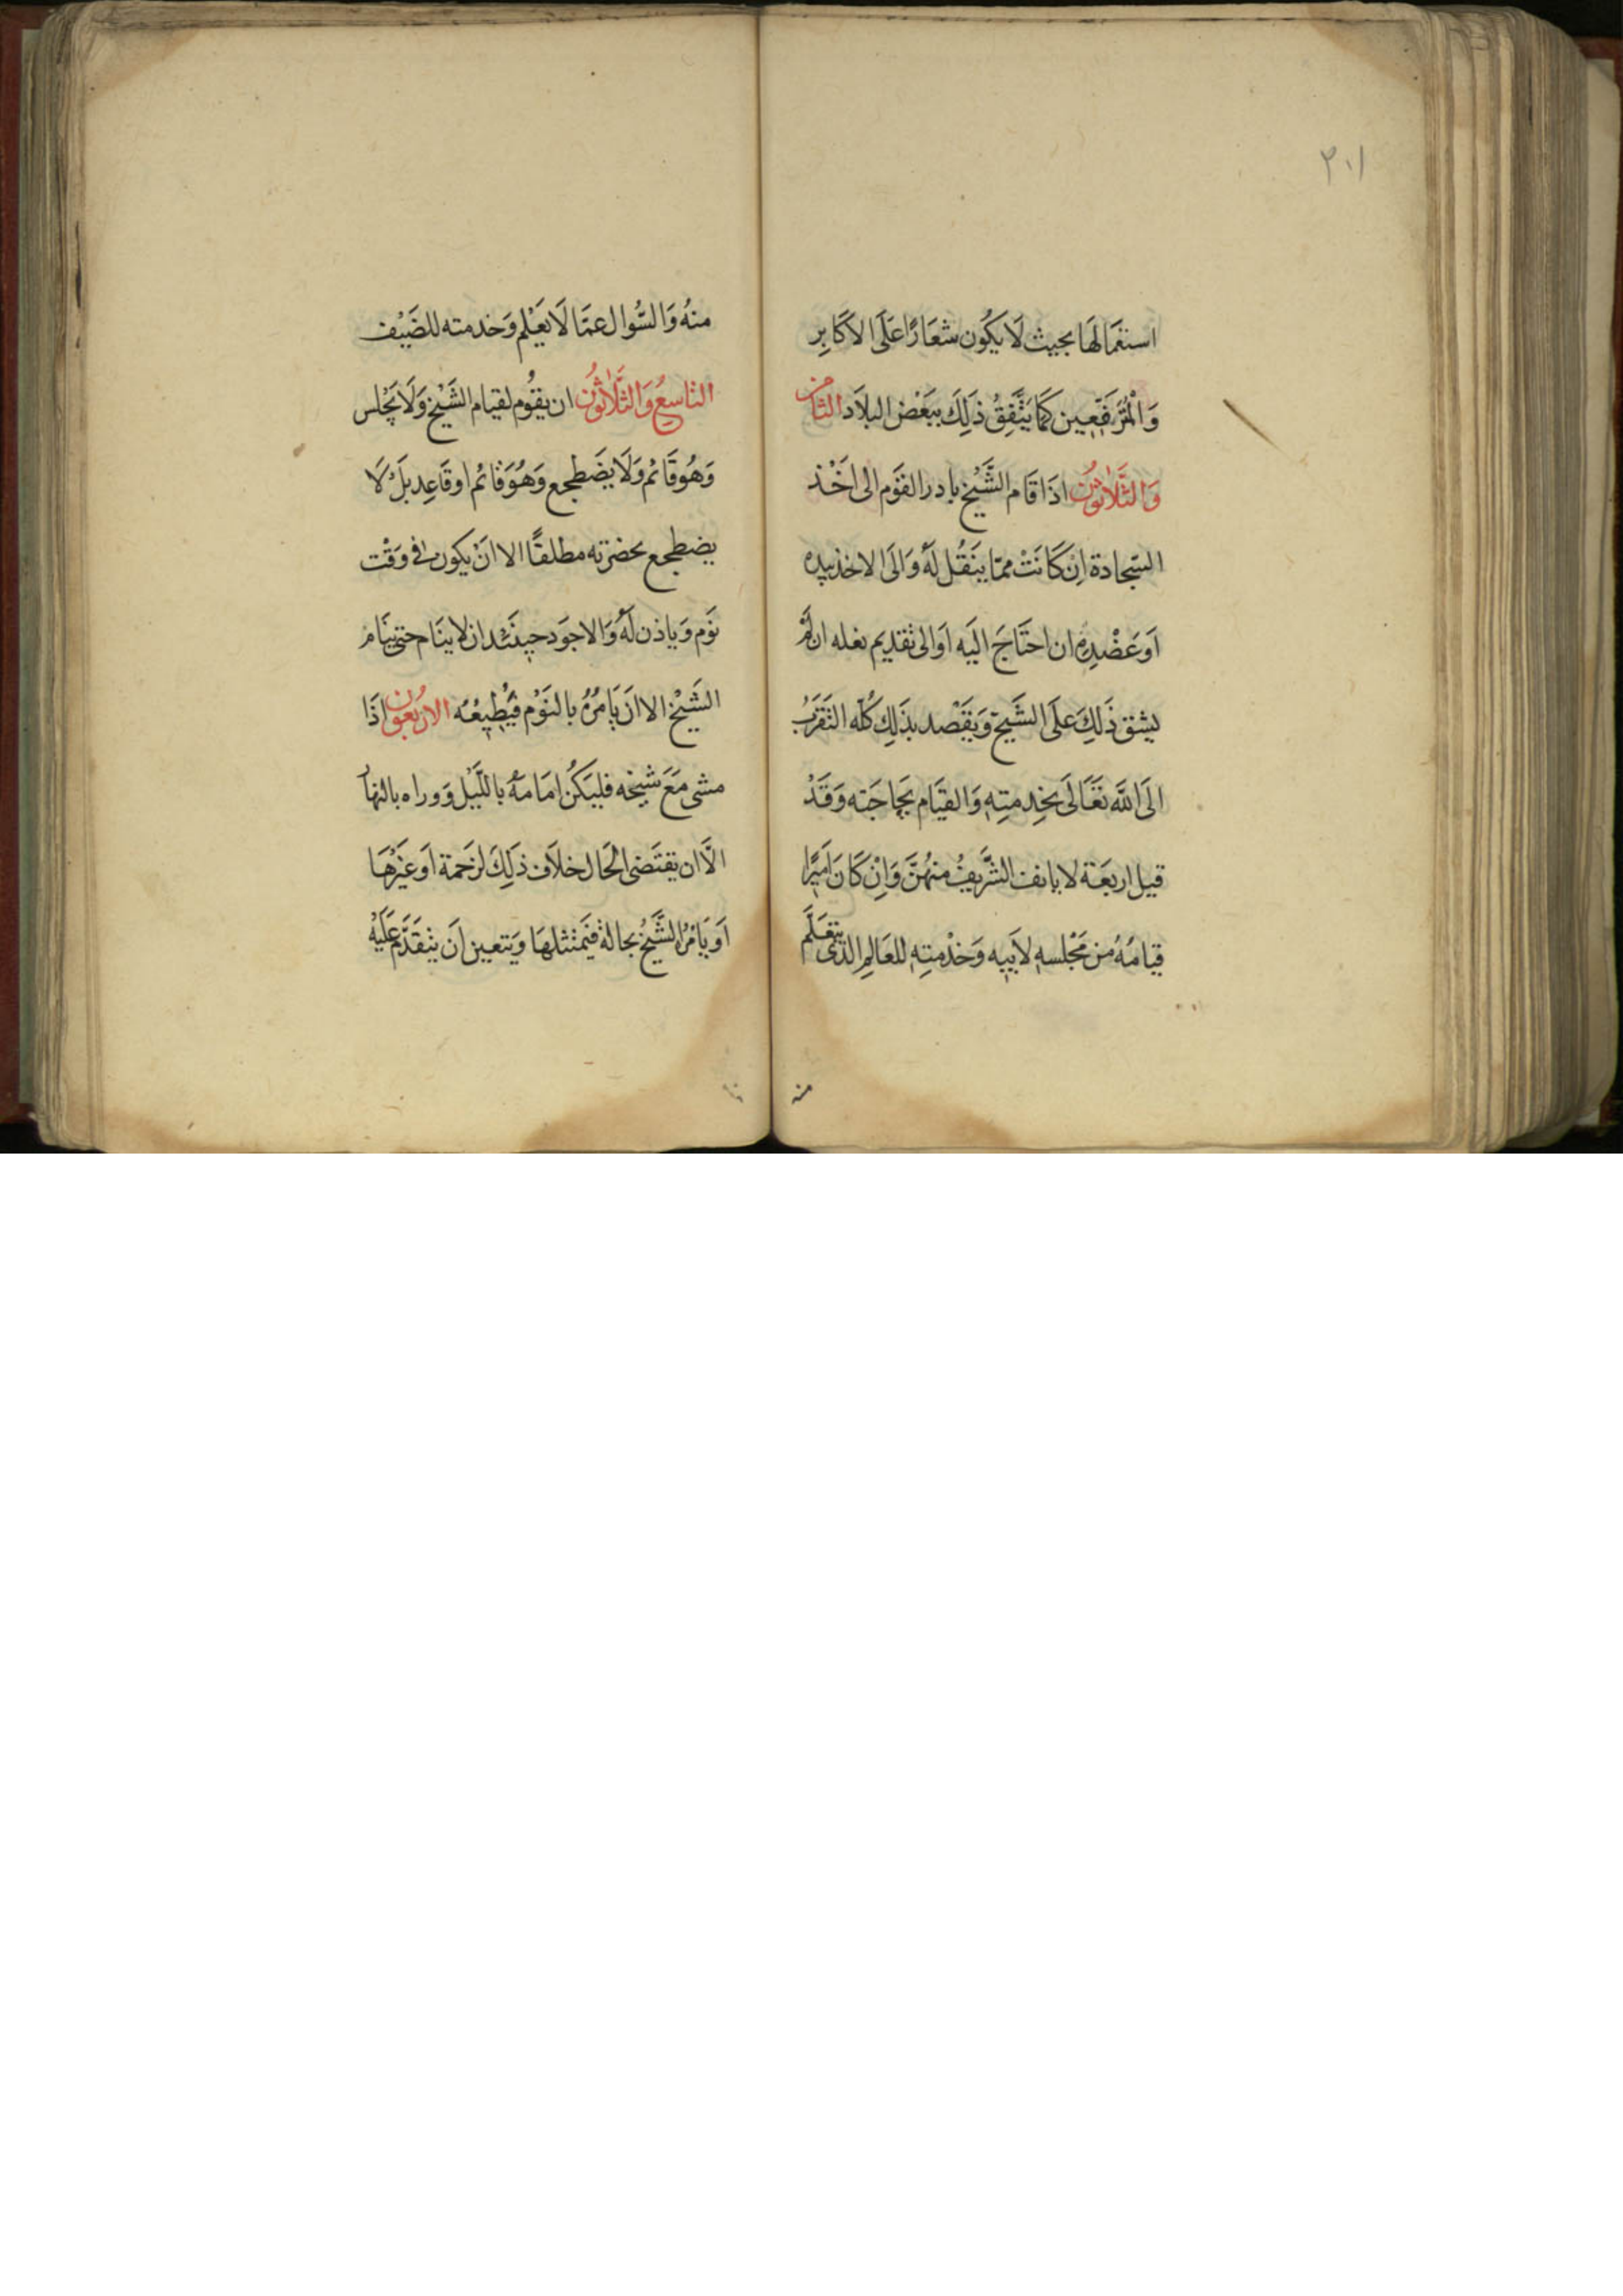 ٢٠١
استعمالها بحيث لَا يكُون شعَارًا عَلَى الاكَابِر
وَالْمُتَرَفّعِين كَمَا يَتَّفِقُ ذَلِكَ ببَعْض البلَاد الثامن
وَالثَّلاثوُن اذَا قَام الشَّيْخ بادر القوَم الى اخْذ
السّجادة اِنْ كَانَتْ ممّا ينَقُل لَهُ وَالَى الاخذ بيده
اَو عَضُدِهِ ان احتَاجَ اليَه اَو الى تقديم نعله ان لَمْ
يشق ذَلِكَ علَى الشَّيخ وَيَقصْد بذَلِكَ كُلّه التَقرَبُ
الَى اللَّه تعَالَى بخِدمتِهِ وَالقيَام بحَاجَته وَقَدْ
قيل اربعَة لا يانف الشَّريفُ منهُنَّ وَاِنْ كَانَ اَميرًا
قيامُهُ من مَجْلسهِ لاَبيِه وَخدْمتِهِ للعَالِم الذى يتعَلَّم
منه
منهُ وَالسُّوال عمَّا لَا يعَلم وَخدمته للضَيْف
التاسعُ وَالثَّلَاثوُن ان يقوُم لقيام الشَّيْخ وَلَا يجْلس
وَهُو قَائم وَلَا يضَطجع وَهُوَ قائم او قَاعِد بَلْ لَا
يضطجع بحضرته مطلقًا الا اَنْ يكون فى وَقْت
نوَم وَياذن لَهُ وَالاجوَد حينَئذ ان لا ينَام حتى ينَام
الشَيْخ الا اَن يَامُرُهُ بالنَوْم فَيُطيعُه الارْبعُون اذَا
مشى مَعَ شيخه فليَكُنْ امَامَهُ باللَّيْل وَوراه بالنهار
الَّا ان يقتَضى الحَال خلَاف ذَلِكَ لزَحمة اَو غيَرْهَا
اَو يَامُرُ الشَّيْخُ بحالة فَيَمتثلهَا وَيتعين اَن يتَقَدَّم عَلَيْهُ